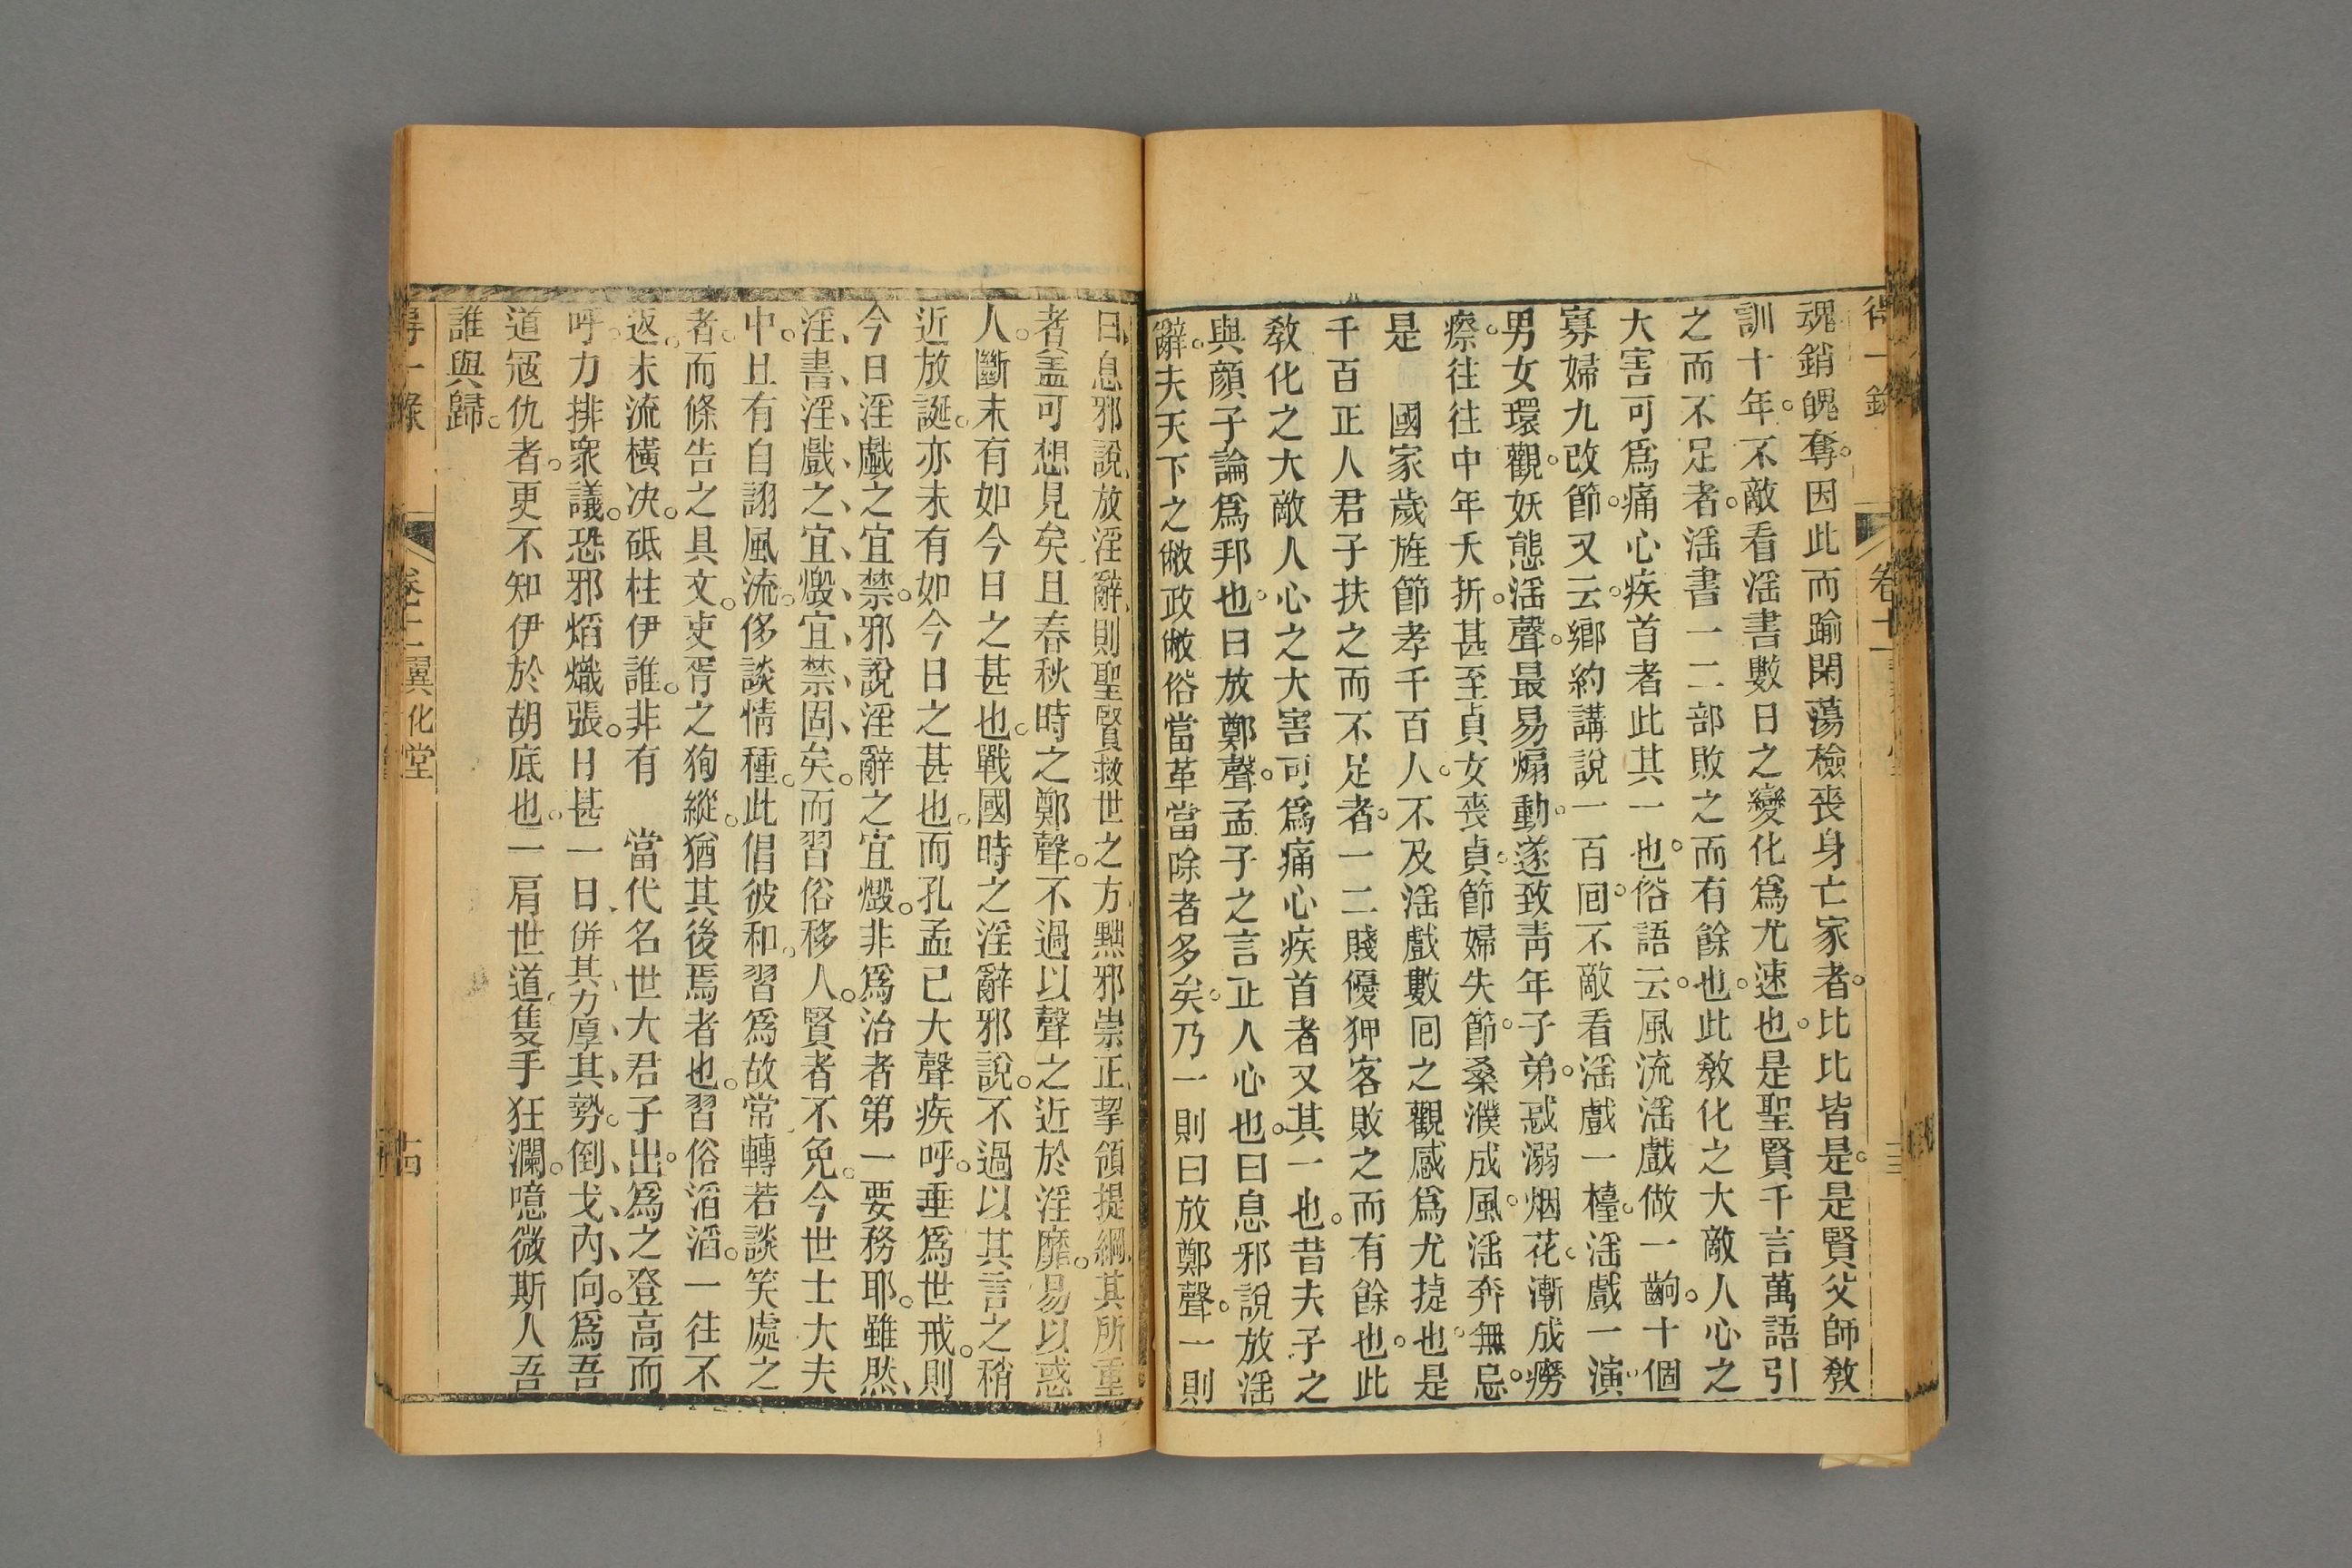 得一錄
卷十一
魂銷魄奪。因此而踰閑蕩檢喪身亡家者。比比皆是。是賢父師敎
訓十年。不敵看滛書數日之變化爲尤速也。是聖賢千言萬語引
之而不足者。滛書一二部敗之而有餘也。此敎化之大敵人心之
大害可爲痛心疾首者此其一也。俗語云。風流滛戲做一齣。十個
寡婦九改節。又云。鄉約講說一百回。不敵看滛戲一檯。滛戲一演。
男女環觀。妖態滛聲。最易煽動。遂致靑年子弟。惑溺烟花。漸成癆
瘵。往往中年夭折。甚至貞女喪貞。節婦失節。桑濮成風。滛奔無忌。
是　國家歲旌節孝千百人。不及滛戲數囘之觀感爲尤㨗也。是
千百正人君子扶之而不足者。一二賤優狎客敗之而有餘也。此
敎化之大敵人心之大害可爲痛心疾首者又其一也。昔夫子之
與顏子論爲邦也。曰放鄭聲。孟子之言正人心也。曰息邪說放滛
辭。夫天下之敝政敝俗當革當除者多矣。乃一則曰放鄭聲。一則
曰息邪說放淫辭、則聖賢救世之方黜邪崇正、挈領提綱、其所重
者葢可想見矣且春秋時之鄭聲。不過以聲之近於淫靡。易以惑
人。斷未有如今日之甚也。戰國時之淫辭邪說。不過以其言之稍
近放誕。亦未有如今日之甚也。而孔孟已大聲疾呼。垂爲世戒。則
今日淫戲之宜禁。邪說淫辭之宜燬。非爲治者第一要務耶。雖然、
淫書淫戲之宜燬宜禁固矣。而習俗移人。賢者不免。今世士大夫
中。且有自詡風流。侈談情種。此倡彼和。習爲故常轉若談笑處之
者。而條告之具文。吏胥之狥縱。猶其後焉者也。習俗滔滔。一往不
返。未流橫决。砥柱伊誰。非有　當代名世大君子出。爲之登高而
呼。力排衆議。恐邪熖熾張。日甚一日、併其力厚其勢。倒戈內向。爲吾
道冦仇者。更不知伊於胡底也。一肩世道。隻手狂瀾。噫微斯人吾
誰與歸。
得一錄
卷十一
翼化堂
十四